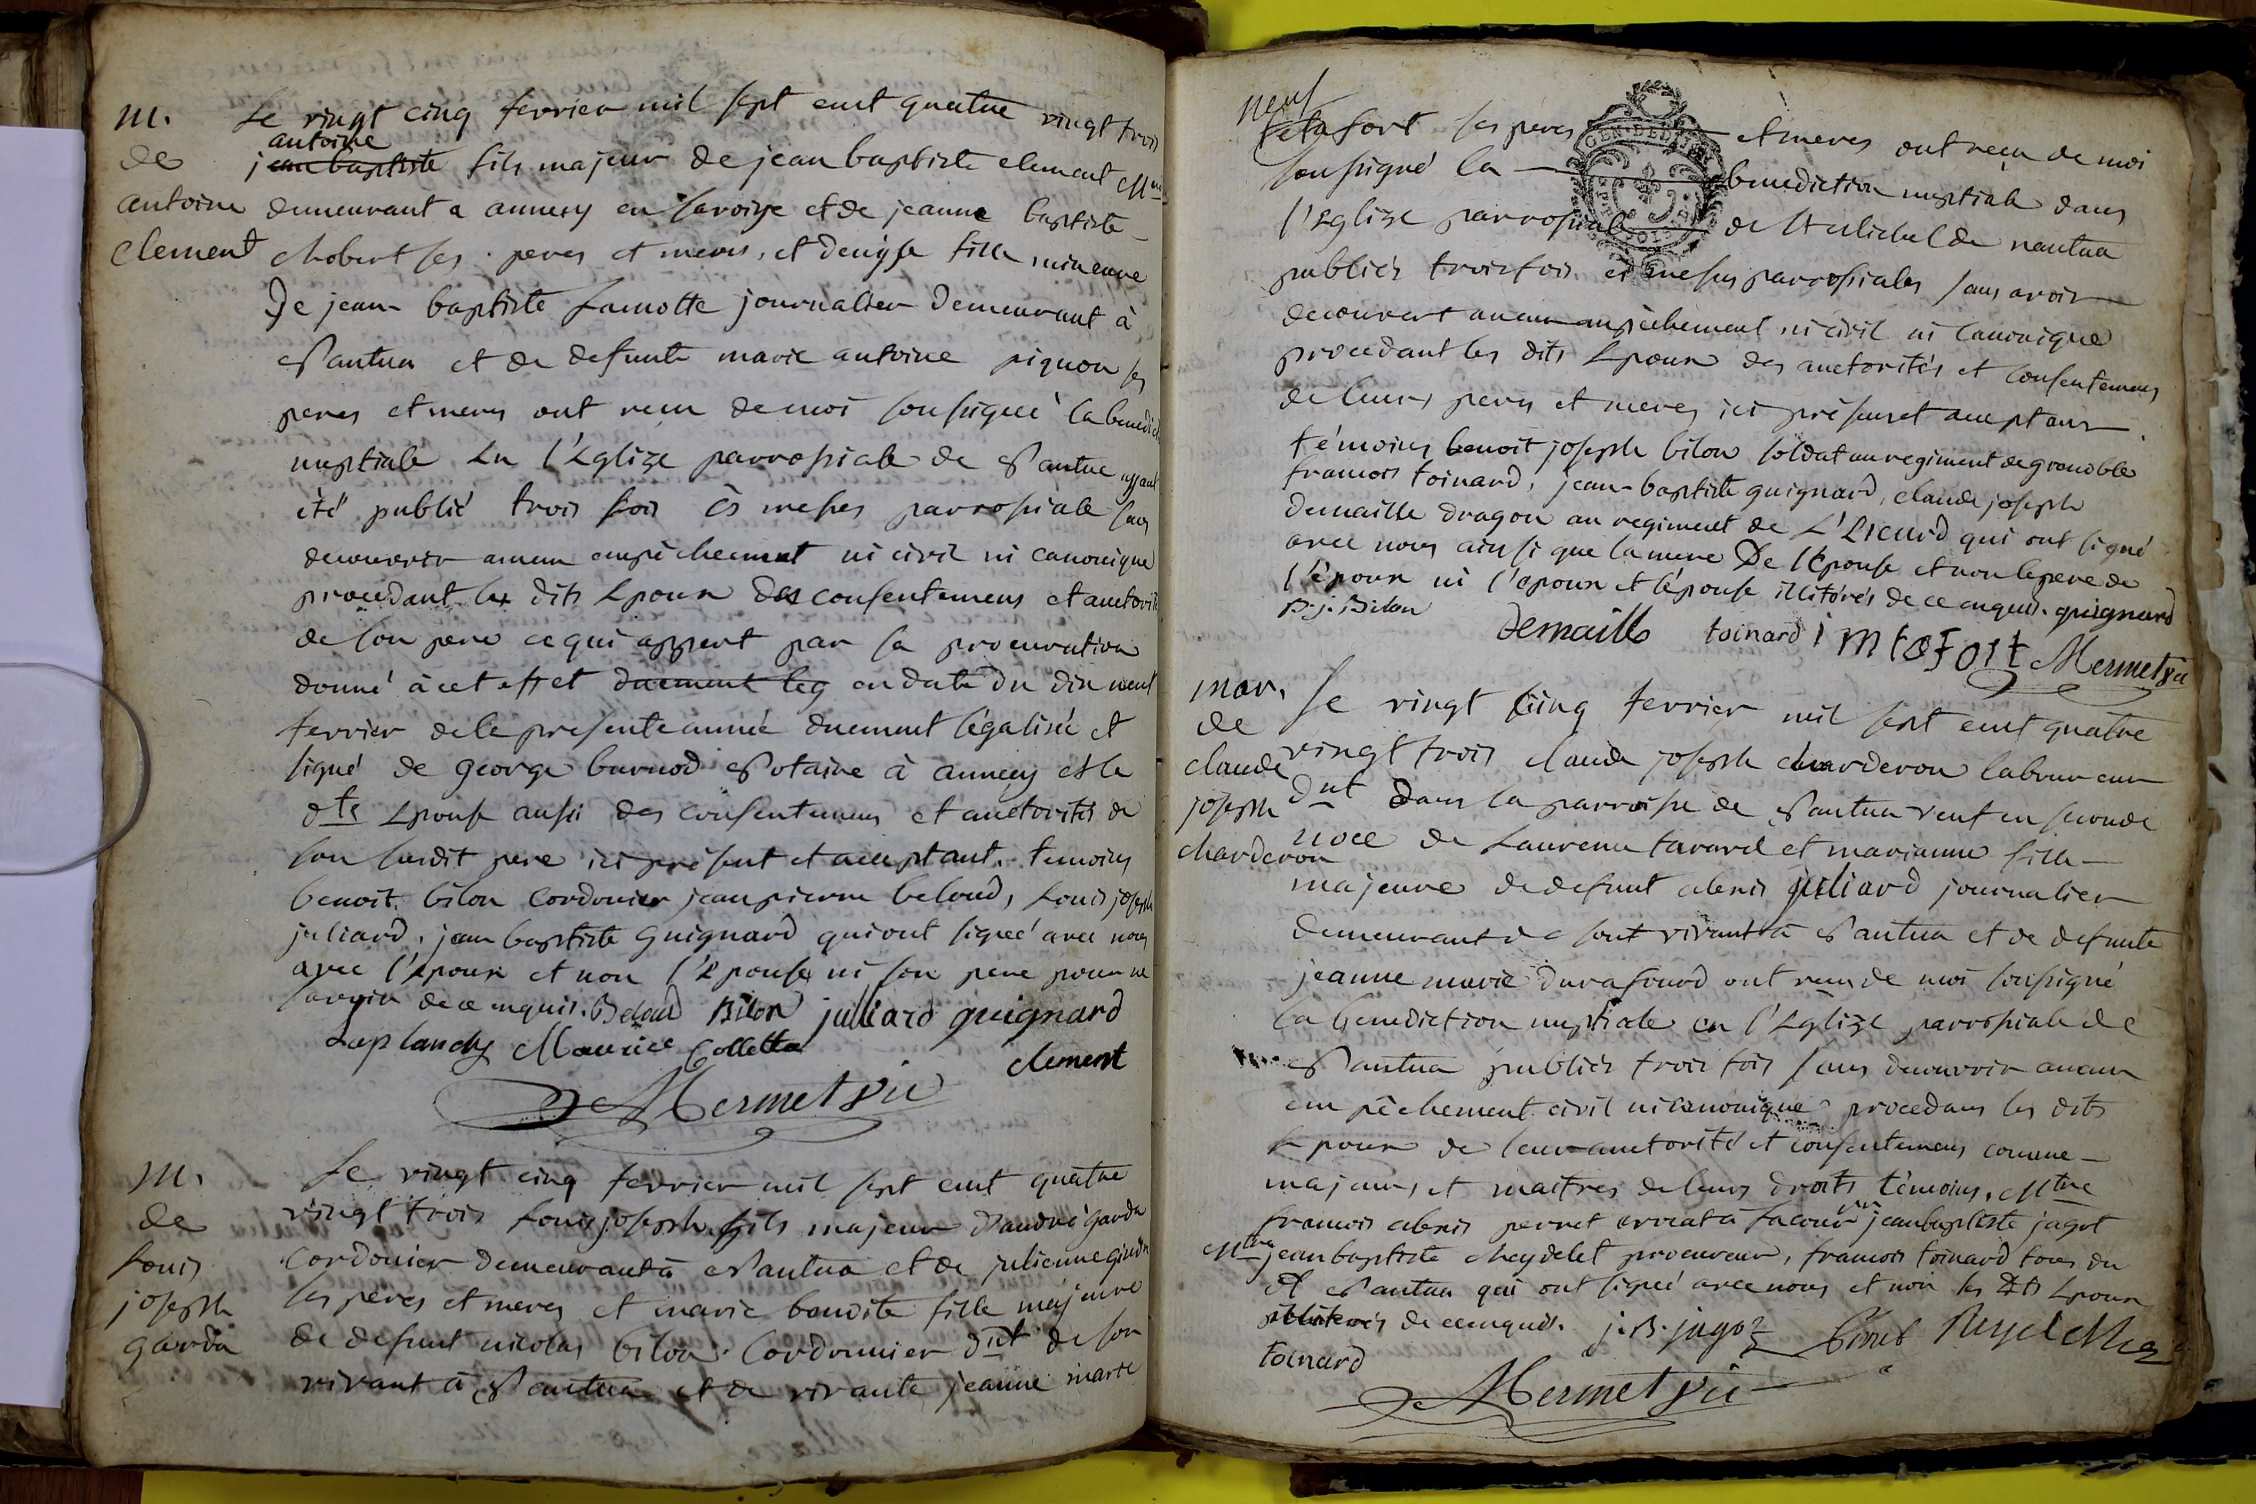 m.
de
antoine
Clement
Le vingt cinq fevrier mil sept cent quatre vingt trois
antoine
jean baptiste fils majeur de jean baptiste clement
demeurant a annecy en savoÿe et de jeanne baptiste
chobert ses peres et meres, et denyse fille mineure
De jean baptiste Lamotte journalier demeurant à
Nantua et de defunte marie antoine pignon ses
peres et meres ont reçu de moi soussigné la benedict
nuptiale en l'Eglize parrossiale de Nantua ayant
été publié trois fois ès messes parrossiale sans
decouvrir aucun empêchement ni civil ni canonique
procedant les dits Epoux des consentemens et auctorité
de son pere ce qui appert par sa procuration
donné à cet effet duement leg en date du dix neuf
fevrier de le presente année duement légalisée et
signé de george burnod Notaire à annecy et la
dte Epouse aussi des consentemens et auctorités de
son susdit pere ici présent et acceptant. temoins
benoit bilon Cordonier jean pierre beloud, Louis joseph
juliard, jean baptiste Guignard qui ont signé avec nous
avec l'Epoux et non l'Epouse ni son pere pour ne
savoir de ce enquis. Beloud Bilon julliard guignard
Laplanche Maurice Colletta
clement
Mermet vic
m.
de
Louis
joseph
garda
Le vingt cinq fevrier mil sept cent quatre
vingt trois Louis joseph fils majeur d'andré garda
cordonier demeurant à Nantua et de julienne
ses peres et meres et marie benoite fille majeure
de defunt nicolas bilon Cordonnier dnt de son
vivant à Nantua et de vivante jeanne marie
neuf
tetafort ses peres et meres ont reçu de moi
soussigné la benediction nuptiale dans
l'Eglize parrossiale de St Michel de nantua
publiés trois fois es messes parrossiales sans avoir
decouvert aucun empêchement ni civil ni canonique
procedant les dits Epoux des auctorités et consentemens
de leurs peres et meres ici présens et acceptans
témoins benoit joseph bilon soldat au regiment de grenoble
francois toinard, jean-baptiste guignard, claude joseph
demaille dragon au regiment de qui ont signé
avec nous ainsi que la mere De l'épouse et non le pere de
l'époux ni l'epoux et l'épouse illitérés de ce enquis. guignard
B. j. Bilon demaille toinard i m tefort Mermet vic
mar.
de
claude
joseph
charderon
Le vingt cinq fevrier mil sept cent quatre
vingt trois claude joseph charderon laboureur
dnt dans la parroisse de Nantua veuf en seconde
noce de Laurence tavarel et marianne fille
majeure de defunt alexis juliard journalier
demeurant de sont vivant à Nantua et de defunte
jeanne marie durafourd ont reçu de moi soussigné
la benediction nuptiale en l'Eglize parrossiale de
Nantua publiés trois fois sans decouvrir aucun
empêchement civil ni canonique procedans les dits
Epoux de leur auctorité et consentemens comme
majeurs et maitres de leurs droits témoins, Mtre
francois alexis perret avocat à la cour jean baptiste jagot
Mtre jean baptiste cheydelet procureur, francois toinard tous du
dt Nantua qui ont signé avec nous et non les dts Epoux
illiterés de ce enquis. j. B. jagot
toinard
Mermet vic